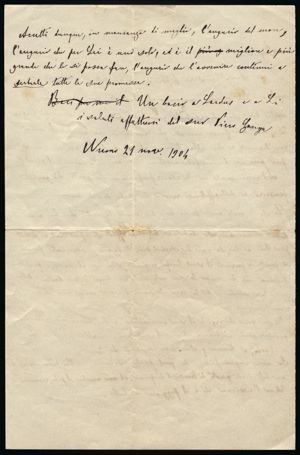 Accetti dunque, in mancanza di meglio, l'augurio del cuore,
l'augurio che per Lei è uno solo, ed è il migliore e più
grande che le si possa fare, l'augurio che l'avvenire continui a
serbale tutte le sue promesse.
Un bacio a e a Lei
i saluti affettuosi del suo Piero
21 nov. 1904